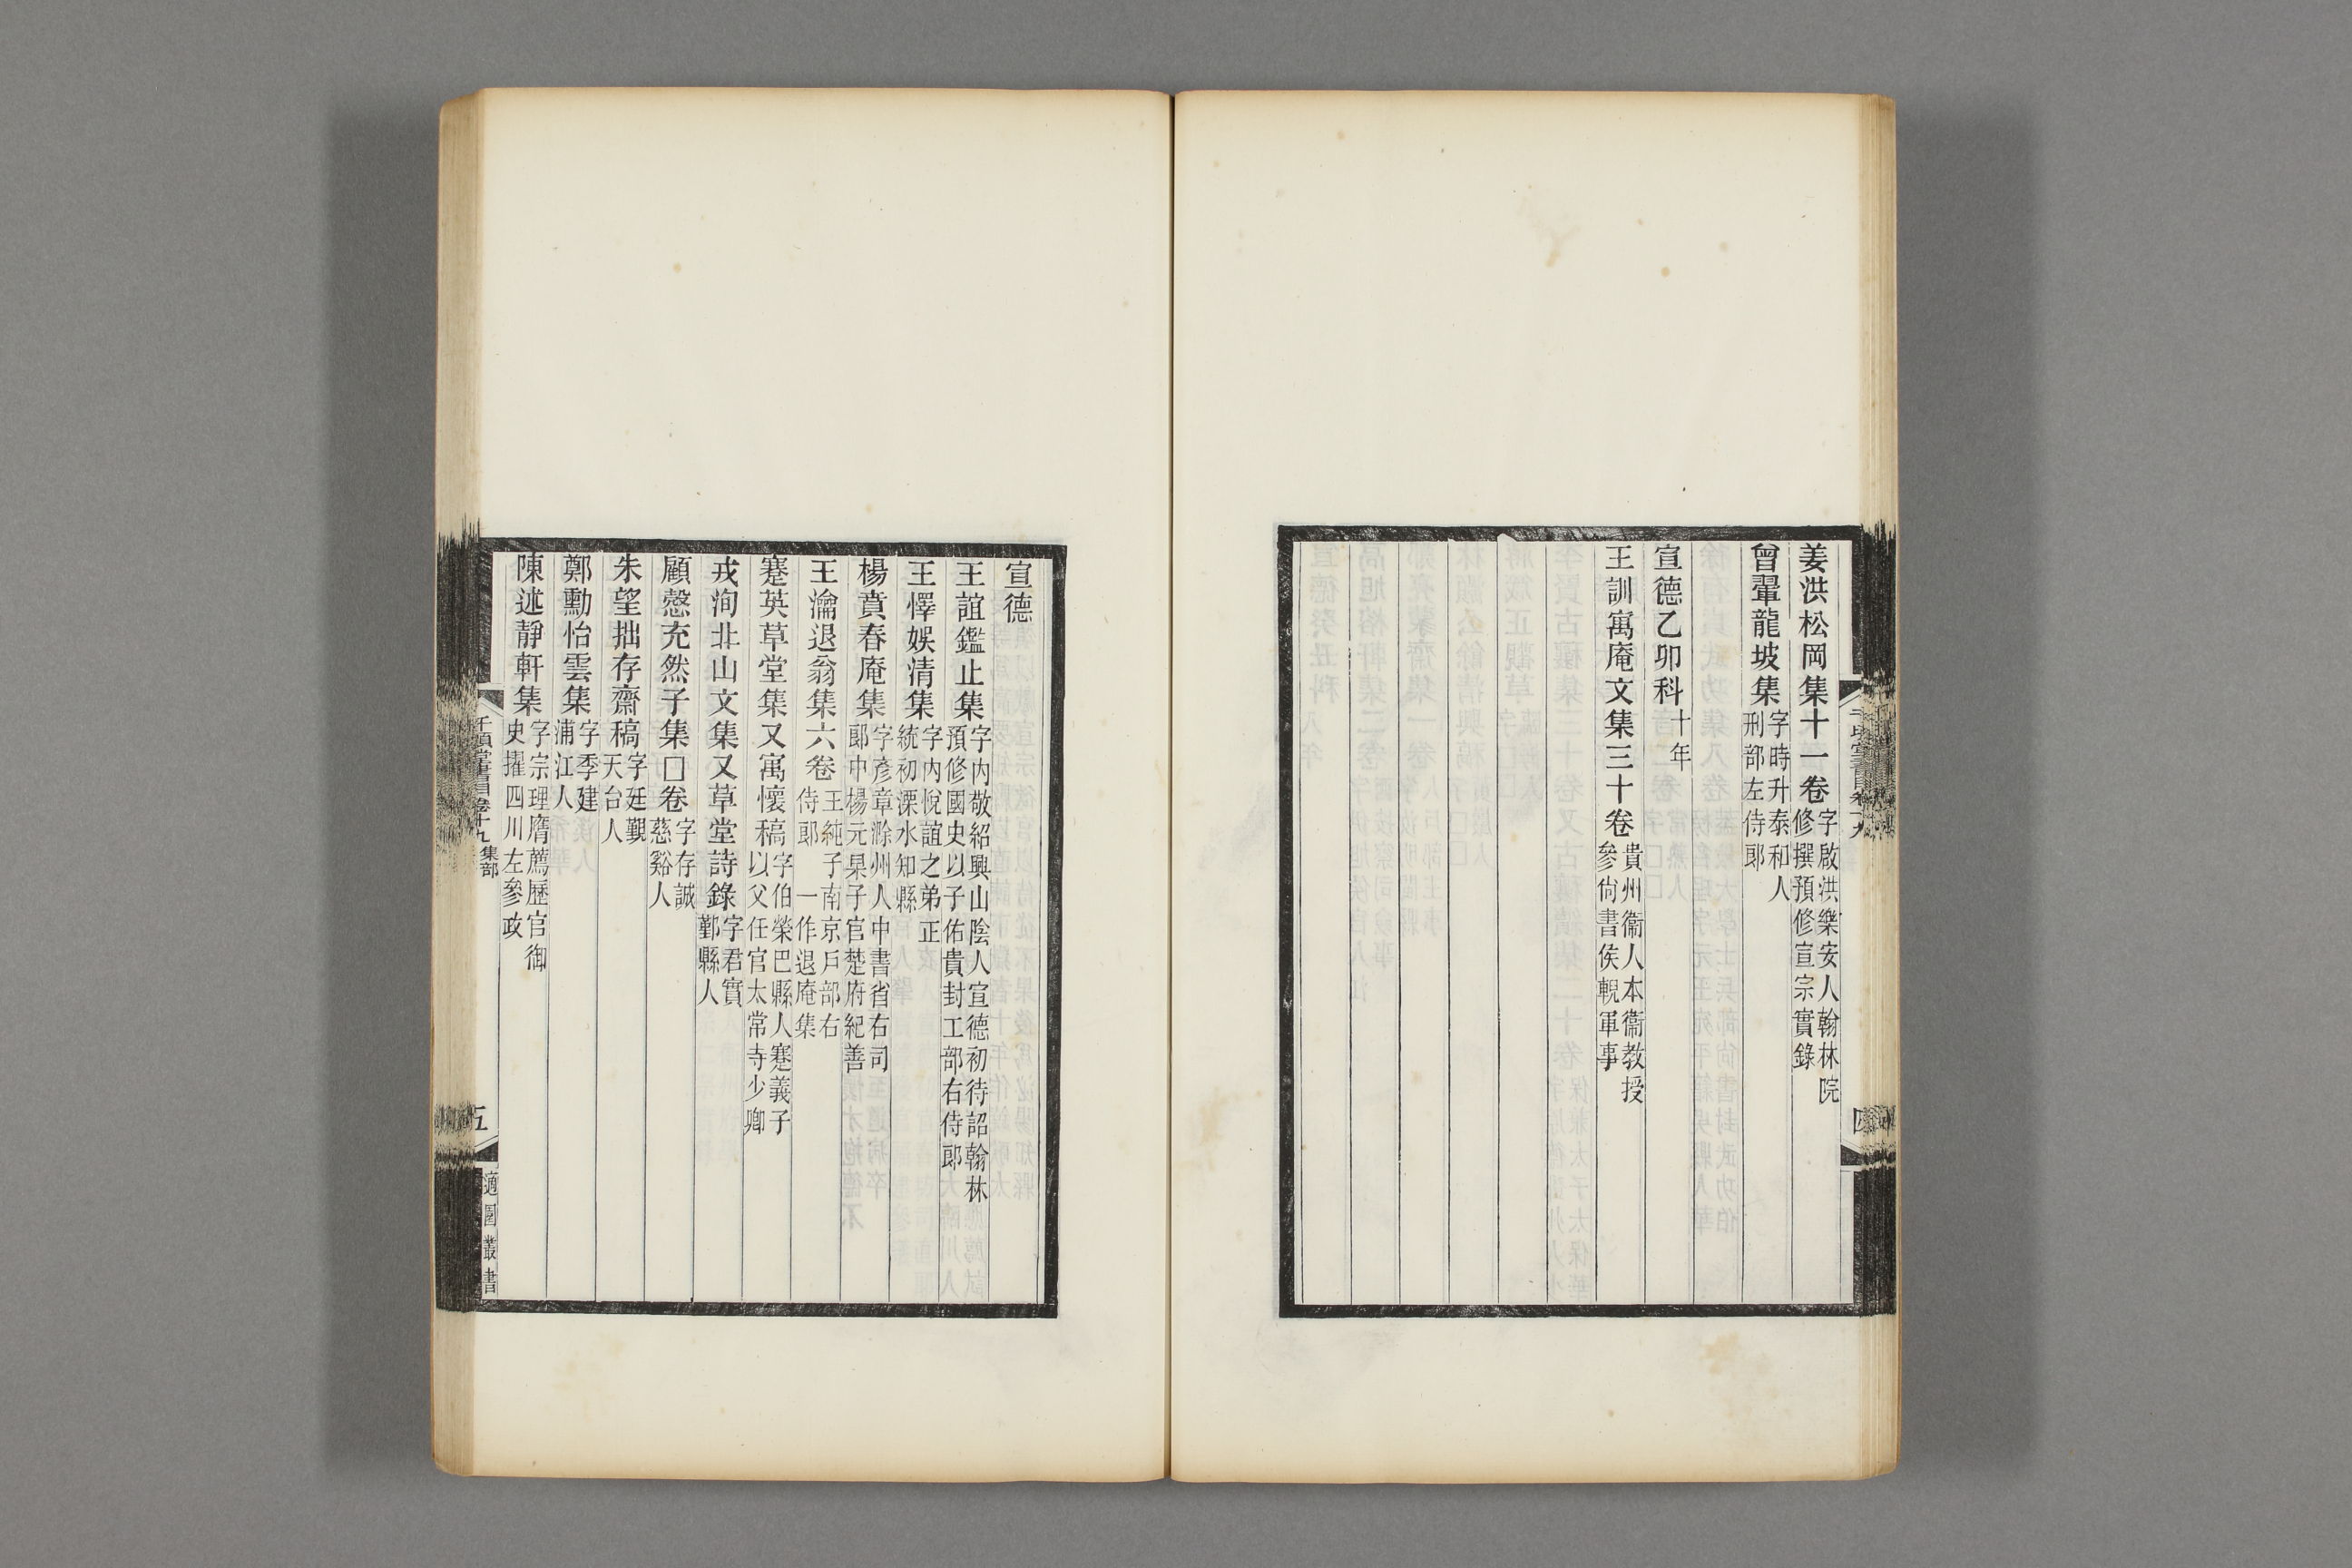 姜洪松岡集十一卷字啟洪樂安人翰林院
修撰預修宣宗實錄
曾翬龍坡集字時升泰和人
刑部左侍郎
宣德乙卯科十年
王訓寓庵文集三十卷貴州衞人本衞教授
參尙書侯軏軍事
四
宣德
王誼鑑止集字內敬紹興山陰人宣德初待詔翰林
預修國史以子佑貴封工部右侍郎
王懌娛清集字內悅誼之弟正
統初溧水知縣
楊賁春庵集字彥章滁州人中書省右司
郎中楊元杲子官楚府紀善
王瀹退翁集六卷王純子南京戶部右
侍郎 一作退庵集
蹇英草堂集又寓懷稿字伯榮巴縣人蹇義子
以父任官太常寺少卿
戎洵北山文集又草堂詩錄字君實
鄞縣人
顧愨充然子集□卷字存誠
慈谿人
朱望拙存齋稿字廷覲
天台人
鄭勳怡雲集字季建
浦江人
陳述靜軒集字宗理膺薦歷官御
史擢四川左參政
千頃堂書目卷十九 集部
五
適園叢書